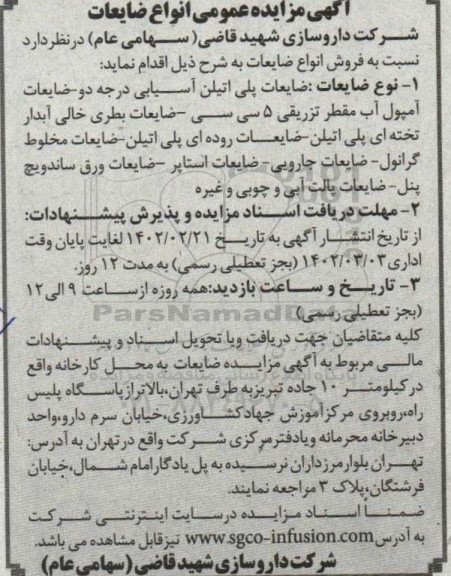 آگهی مزایده عمومی انواع ضایعات
شرکت داروسازی شهید قاضی( سهامی عام) در نظر دارد
نسبت به فروش انواع ضایعات به شرح ذیل اقدام نماید:
۱- نوع ضایعات :ضایعات پلی اتیلن آسیابی درجه دو-ضایعات
آمپول آب مقطر تزریقی ۵ سی سی -ضایعات بطری خالی آبدار
تخته ای پلی اتیلن-ضایعات روده ای پلی اتیلن-ضایعات مخلوط
گرانول- ضایعات جارویی- ضایعات استاپر -ضایعات ورق ساندویچ
پنل- ضایعات پالت آبی و چوبی و غیره
۲- مهلت دریافت اسناد مزایده و پذیرش پیشنهادات:
از تاریخ انتشار آگهی به تاریخ ۱۴۰۲/۰۲/۲۱ لغایت پایان وقت
اداری ۱۴۰۲/۰۳/۰۳ (بجز تعطیلی رسمی) به مدت ۱۲ روز.
۳- تاریخ و ساعت بازدید:همه روزه از ساعت ۹ الی ۱۲
(بجز تعطیلی رسمی)
ParsNamadData
کلیه متقاضیان جهت دریافت ویا تحویل اسناد و پیشنهادات
مالی مربوط به آگهی مزایده ضایعات به محل کارخانه واقع
در کیلومتر ۱۰ جاده تبریز به طرف تهران،بالاتر از پاسگاه پلیس
راه،روبروی مرکز آموزش جهاد کشاورزی،خیابان سرم دارو،واحد
دبیرخانه محرمانه ویادفتر مرکزی شرکت واقع در تهران به آدرس:
تهران بلوار مرزداران نرسیده به پل یادگار امام شمال،خیابان
فرشتگان،پلاک ۳ مراجعه نمایند.
ضمنا اسناد مزایده در سایت اینترنتی شرکت
به آدرس www.sgco-infusion.com نیز قابل مشاهده می باشد.
شرکت داروسازی شهید قاضی (سهامی عام)